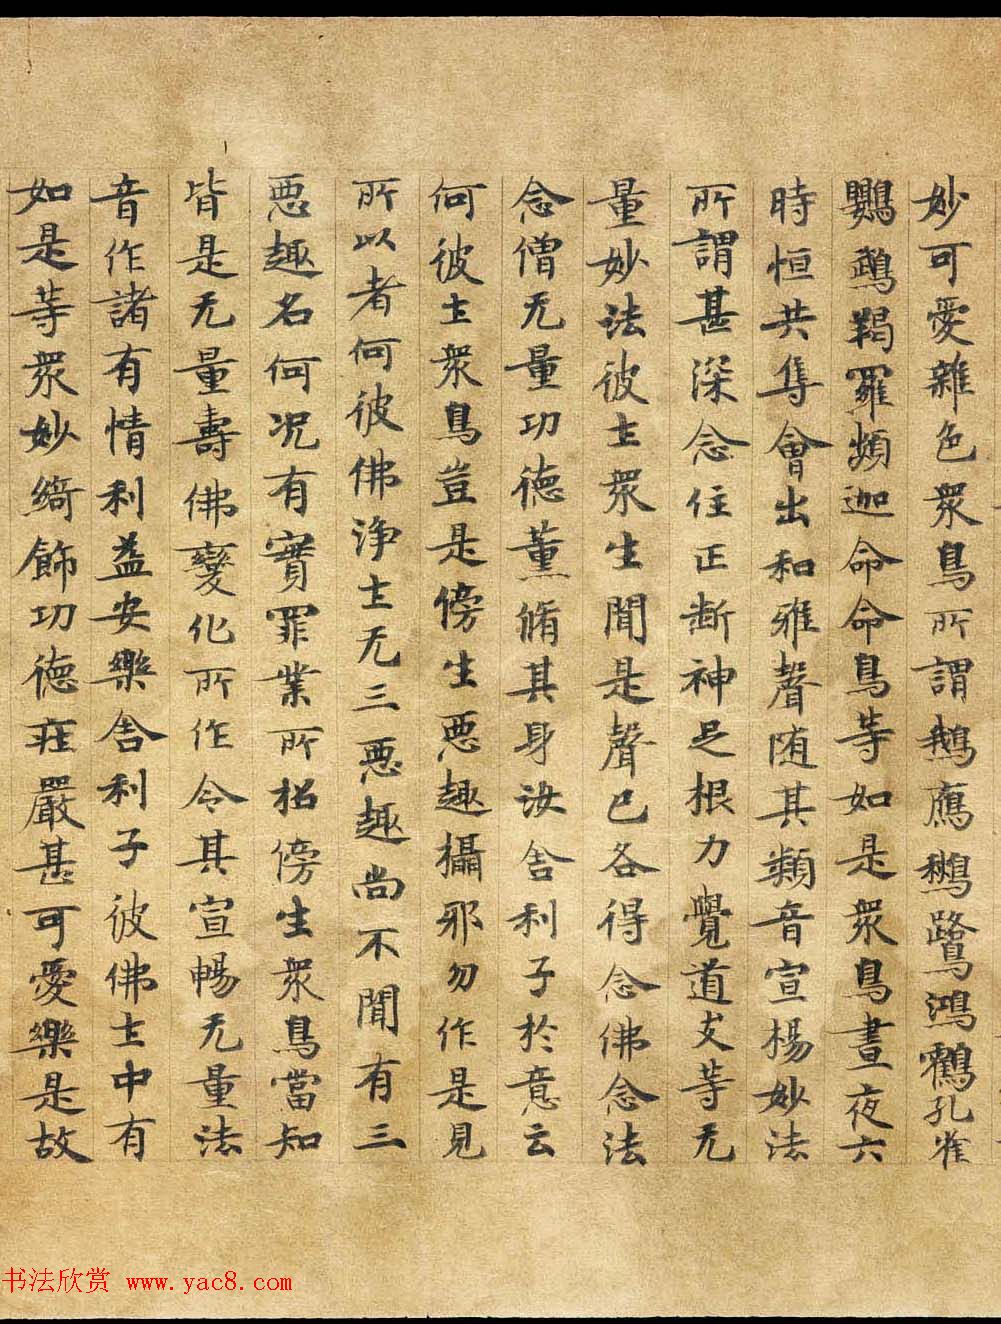 妙可愛雜色衆鳥所謂鵝鴈鶖鷺鴻鶴孔雀
鸚鵡羯羅頻迦命命鳥等如是衆鳥晝夜六
時恒共集會出和雅聲随其類音宣楊妙法
所謂甚深念住正断神足根力覺道支等无
量妙法彼土衆生聞是聲已各得念佛念法
念僧无量功德薰脩其身汝舍利子於意云
何彼土衆鳥豈是傍生惡趣攝邪勿作是見
所以者何彼佛浄土无三惡趣尚不聞有三
惡趣名何况有實罪業所招傍生衆鳥當知
皆是无量壽佛變化所作令其宣暢无量法
音作諸有情利益安樂舍利子彼佛土中有
如是等衆妙綺飾功德莊嚴甚可愛樂是故
书法欣赏 www.yac8.com